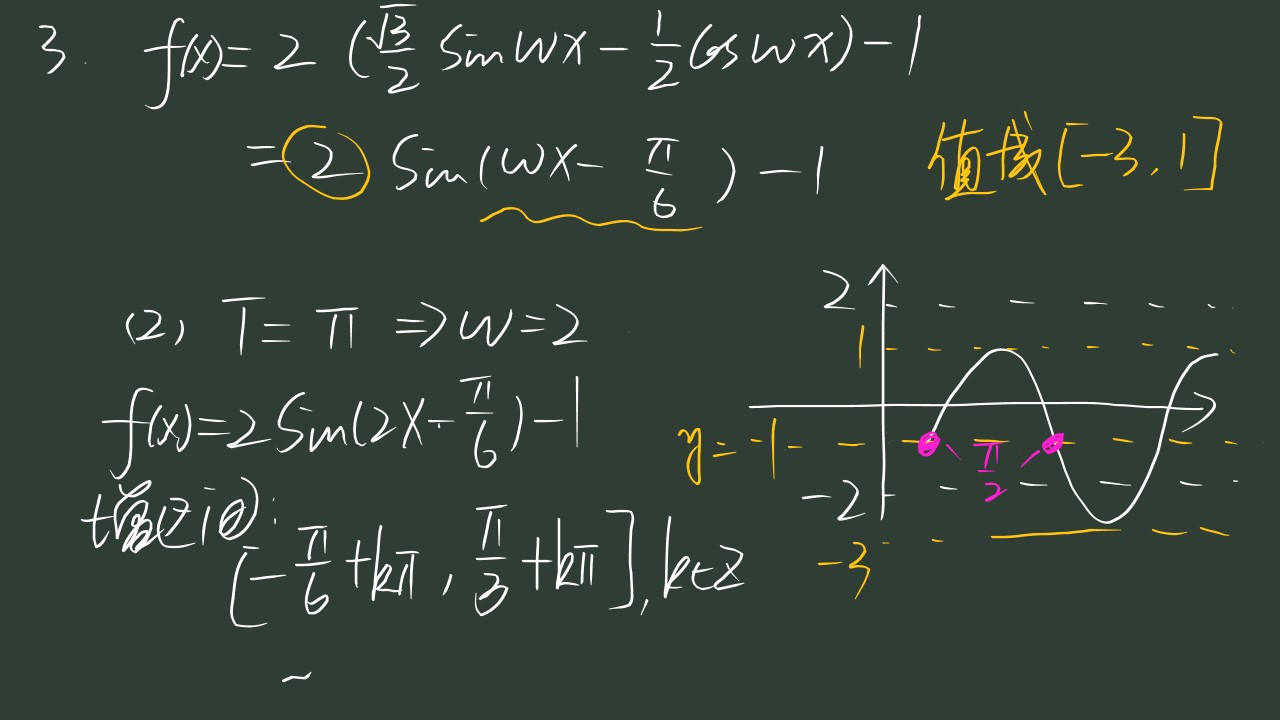 3. f(x)=2(√3/2 sinωx-1/2 cosωx)-1
=2 sin(ωx-π/6)-1
值域[-3,1]
(2) T=π⇒ω=2
f(x)=2sin(2x-π/6)-1
增区间:
[-π/6+kπ,π/3+kπ],k∈Z
2
1
y=-1
π/2
-2
-3